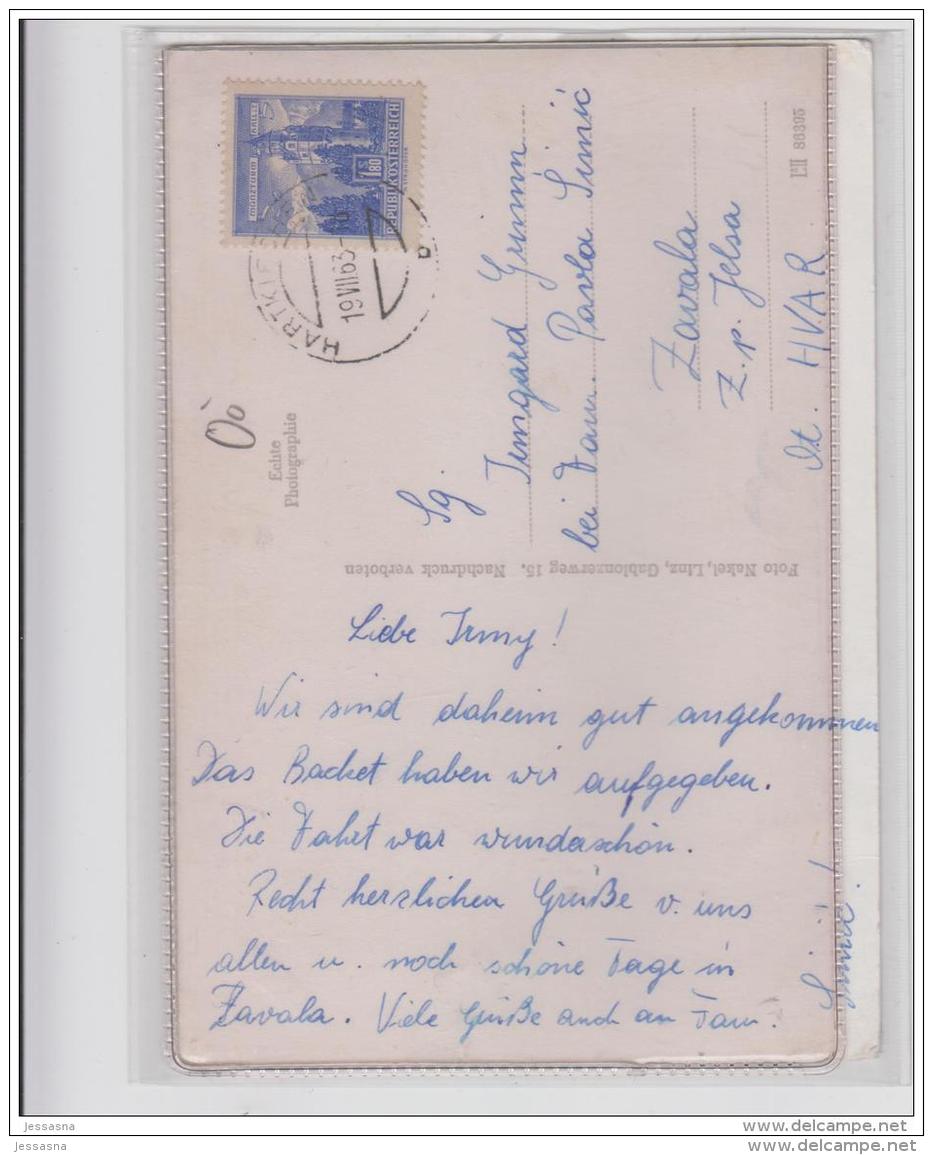 Liebe Irmy!
Wir sind daheim gut angekommen
Das Backet haben wir aufgegeben.
Die Fahrt war wunderschön.
Recht herzlichen Grüße v. uns
allen u. noch schöne Tage in
Zavala. Viele Grüße auch an Fam.
Simić!
Foto Nakel, Linz, Gablonzerweg 15. Nachdruck verboten
Echte
Photographie
Sg
Irmgard Grimm
bei Fam. Pavla Simić
Zavala
Z. p. Jelsa
HVAR
86395
REPUBLIK ÖSTERREICH
1.80
19.VII.63
jessasna
jessasna
www.delcampe.net
www.delcampe.net